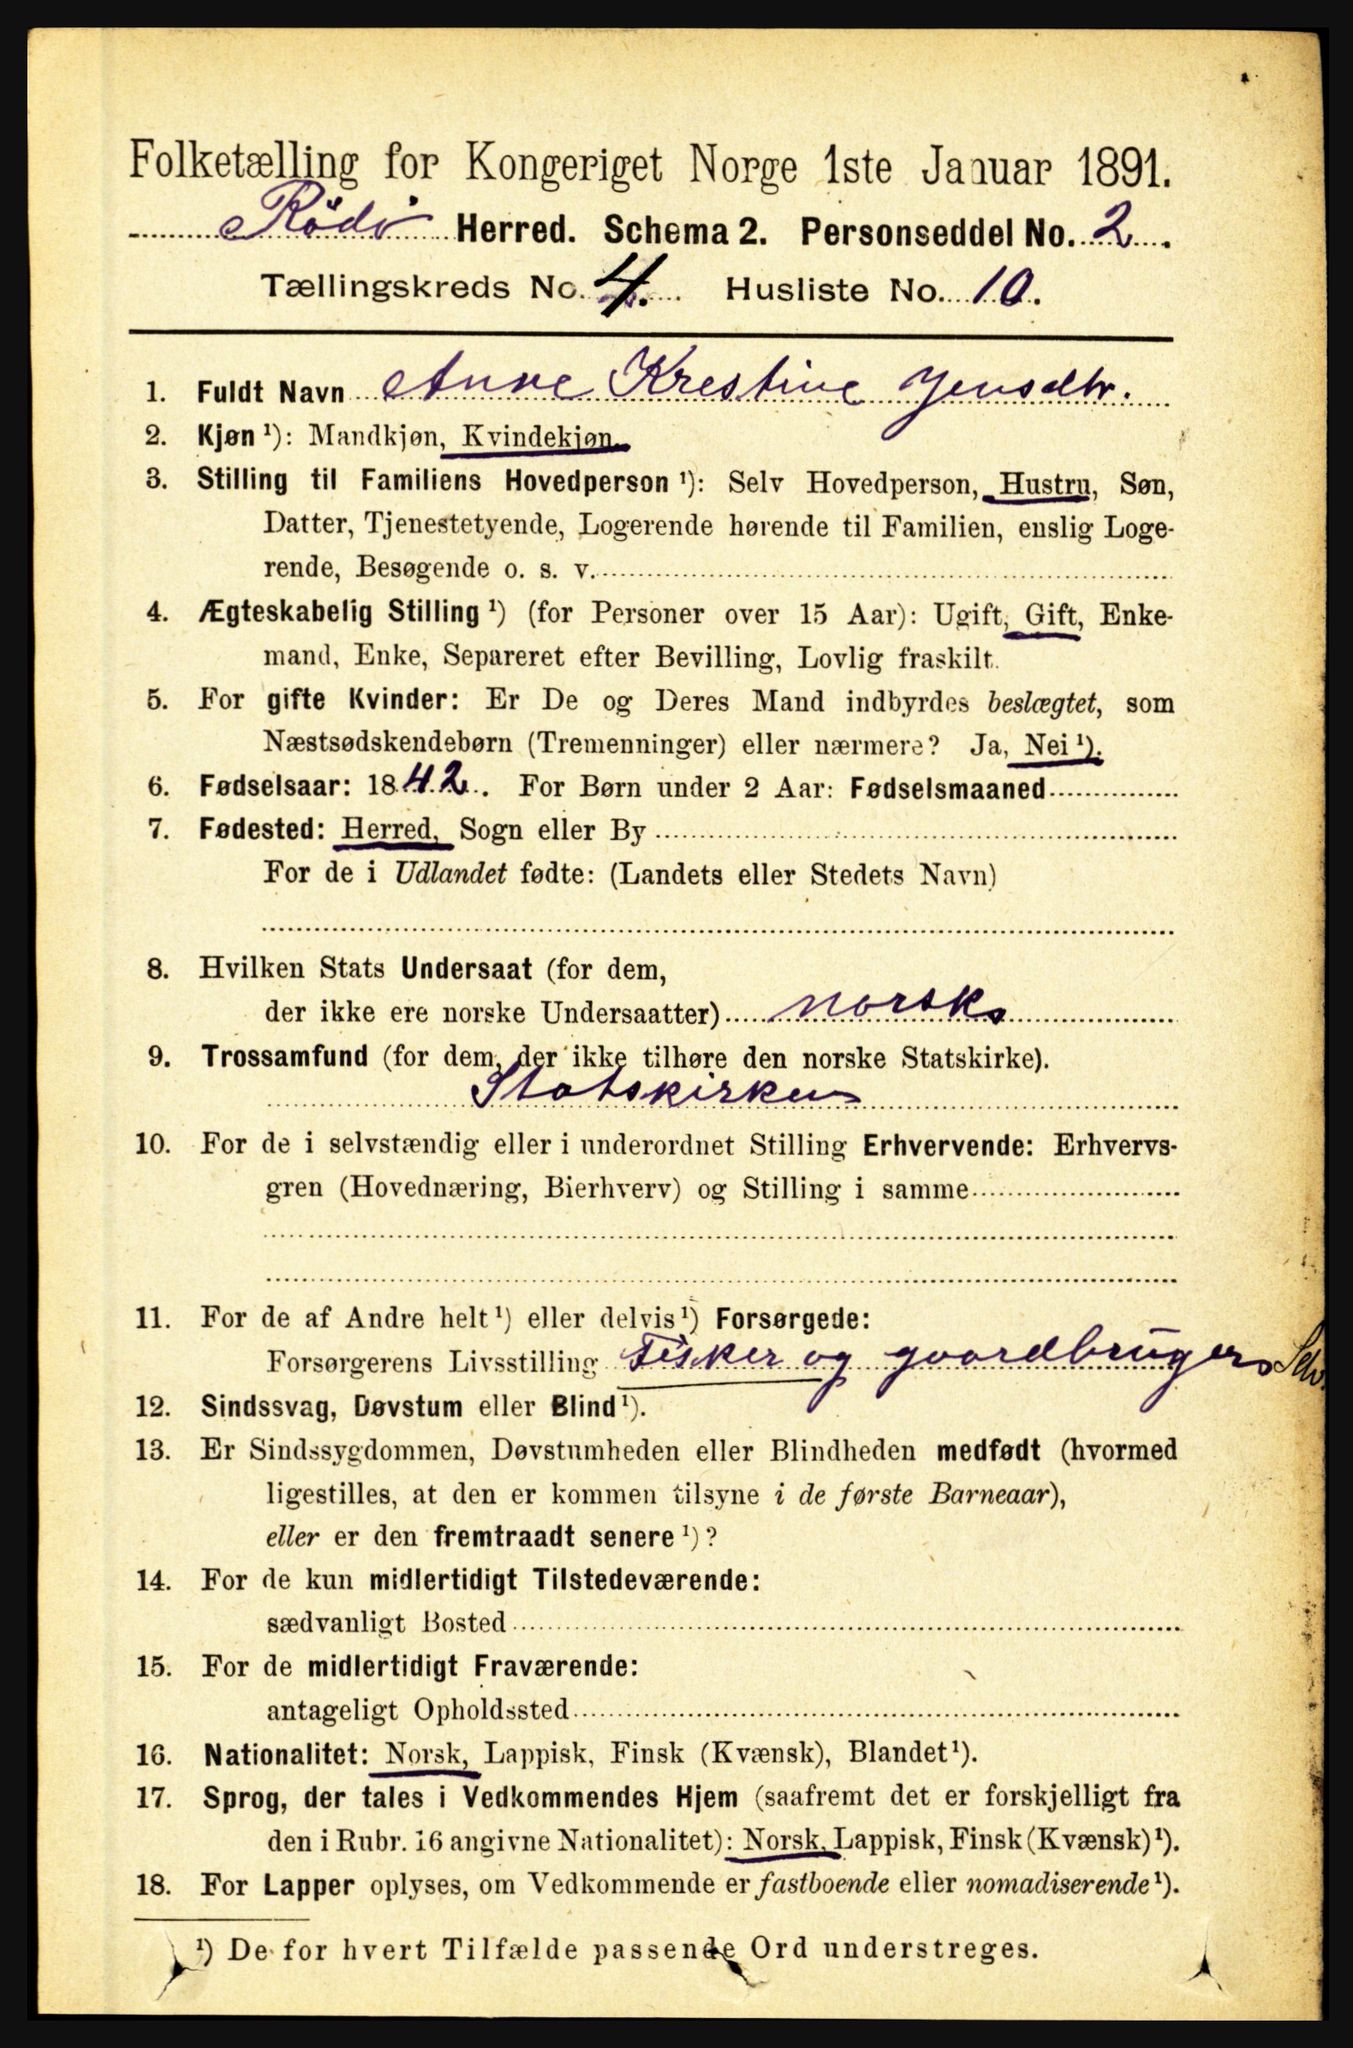 Folketælling for Kongeriget Norge 1ste Januar 1891.
Rödö Herred. Schema 2. Personseddel No. 2.
Tællingskreds No. 4. Husliste No. 10.
1. Fuldt Navn Anne Krestine Jensdtr.
2. Kjøn ¹): Mandkjøn, Kvindekjøn.
3. Stilling til Familiens Hovedperson ¹): Selv Hovedperson, Hustru, Søn,
Datter, Tjenestetyende, Logerende hørende til Familien, enslig Loge-
rende, Besøgende o. s. v.
4. Ægteskabelig Stilling ¹) (for Personer over 15 Aar): Ugift, Gift, Enke-
mand, Enke, Separeret efter Bevilling, Lovlig fraskilt.
5. For gifte Kvinder: Er De og Deres Mand indbyrdes beslægtet, som
Næstsødskendebørn (Tremenninger) eller nærmere? Ja, Nei ¹).
6. Fødselsaar: 1842. For Børn under 2 Aar: Fødselsmaaned
7. Fødested: Herred, Sogn eller By
For de i Udlandet fødte: (Landets eller Stedets Navn)
8. Hvilken Stats Undersaat (for dem,
der ikke ere norske Undersaatter) norsk
9. Trossamfund (for dem, der ikke tilhøre den norske Statskirke).
Statskirken
10. For de i selvstændig eller i underordnet Stilling Erhvervende: Erhvervs-
gren (Hovednæring, Bierhverv) og Stilling i samme
11. For de af Andre helt ¹) eller delvis ¹) Forsørgede:
Forsørgerens Livsstilling Fisker og gaardbruger Selv.
12. Sindssvag, Døvstum eller Blind ¹).
13. Er Sindssygdommen, Døvstumheden eller Blindheden medfødt (hvormed
ligestilles, at den er kommen tilsyne i de første Barneaar),
eller er den fremtraadt senere ¹)?
14. For de kun midlertidigt Tilstedeværende:
sædvanligt Bosted
15. For de midlertidigt Fraværende:
antageligt Opholdssted
16. Nationalitet: Norsk, Lappisk, Finsk (Kvænsk), Blandet ¹).
17. Sprog, der tales i Vedkommendes Hjem (saafremt det er forskjelligt fra
den i Rubr. 16 angivne Nationalitet): Norsk, Lappisk, Finsk (Kvænsk) ¹).
18. For Lapper oplyses, om Vedkommende er fastboende eller nomadiserende ¹).
¹) De for hvert Tilfælde passende Ord understreges.